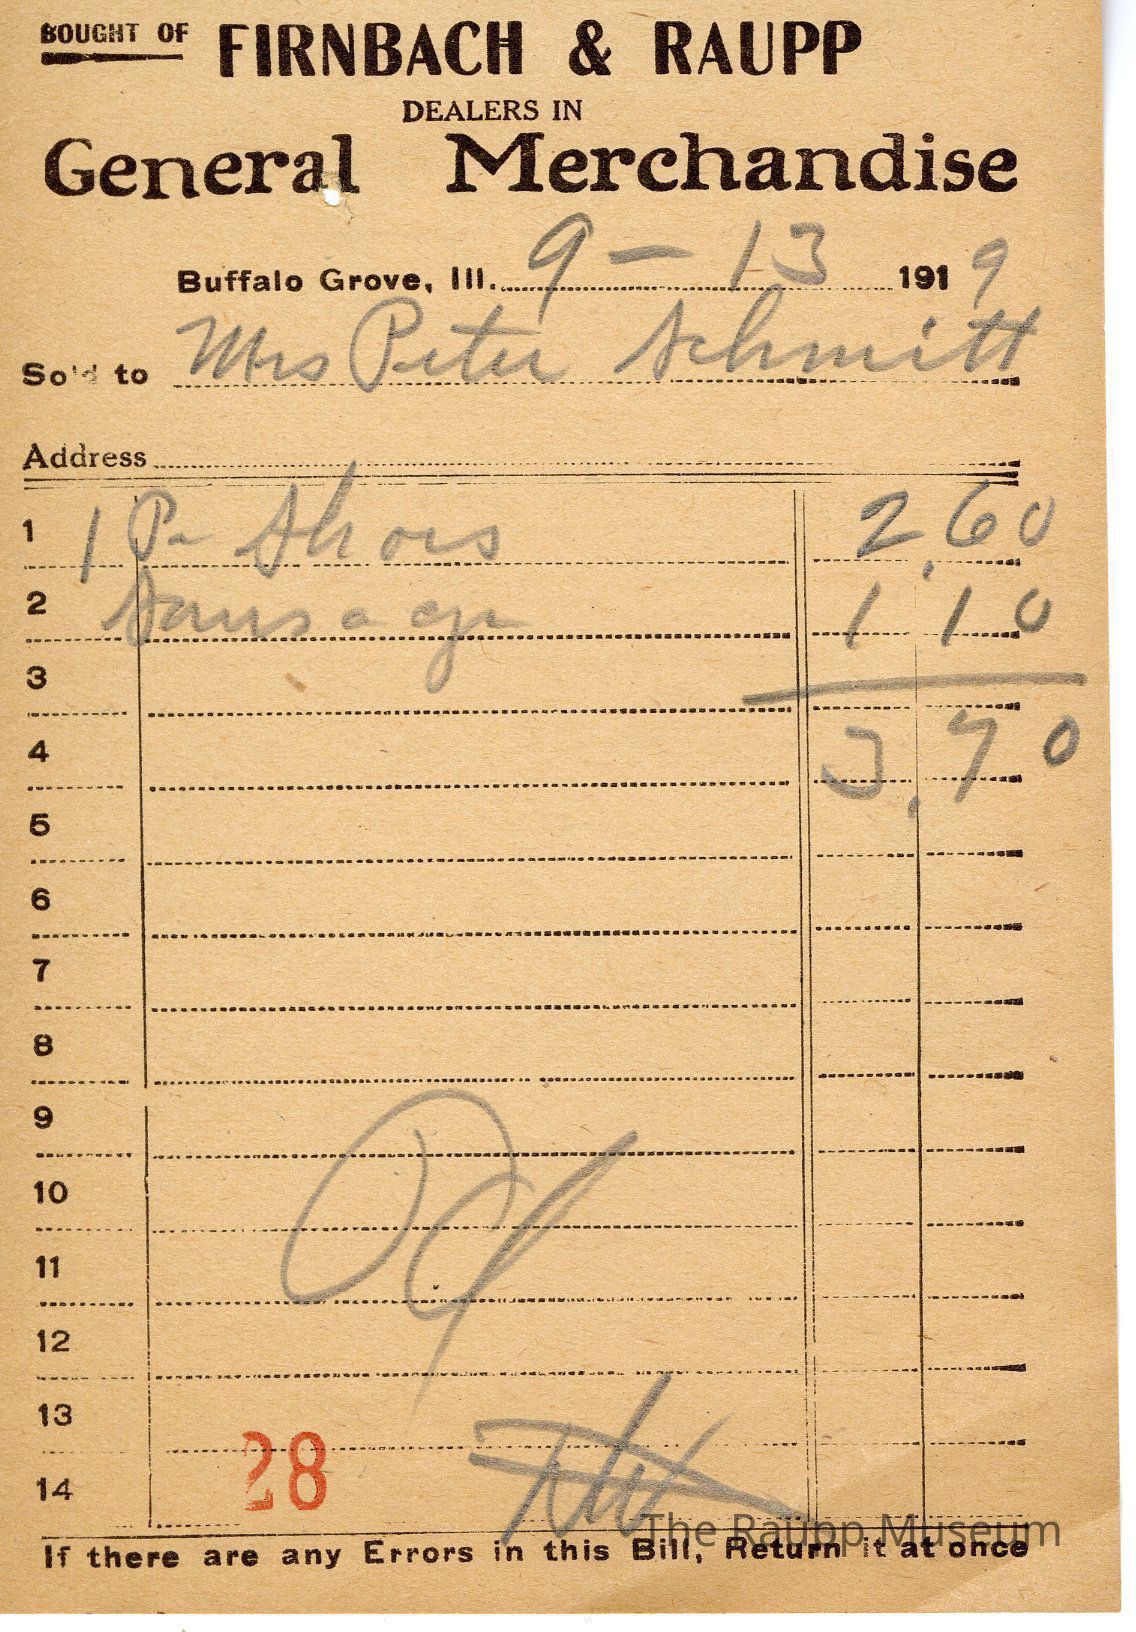 BOUGHT OF FIRNBACH & RAUPP
DEALERS IN
General Merchandise
Buffalo Grove, Ill. 9 - 13 1919
Sold to Mrs Peter Schmitt
Address
1 1 Pr Shoes 2.60
2 Sausage 1 10
3
4 3.70
5
6
7
8
9
10
11
12
13
14
28
The Raupp Museum
If there are any Errors in this Bill, Return it at once